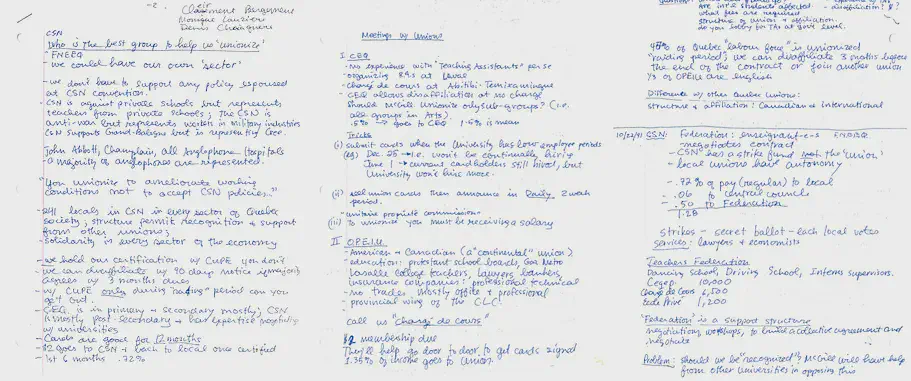 -2-
Clairmont Bergeron
Monique Lauzière
Denis Choinière
CSN
Who is the best group to help us 'unionize'
FNEEQ
- we could have our own 'sector'
- we don't have to support any policy espoused
at CSN convention.
- CSN is against private schools but represents
teachers from private schools; the CSN is
anti-war but represents workers in military industries
CSN supports Grand-Baleine but is representing Cree.
John Abbott, Champlain, all Anglophone Hospitals
- a majority of anglophones are represented.
"You unionize to ameliorate working
conditions (not to accept CSN policies."
- 2411 locals in CSN in every sector of Quebec
society; structure permit recognition + support
from other unions;
- Solidarity in every sector of the economy
- we hold our certification w/ CUPE you don't
- we can disaffiliate w/ 90 day notice if majority
agrees w/ 3 months dues
- w/ CUPE only during "raiding" period can you
get out.
- CEQ is in primary + secondary mostly; CSN
is mostly post-secondary + has expertise negotiating
w/ universities
- Cards are good for 12 months
- $2 goes to CSN + back to local once certified
- 1st 6 months .72%
Meetings w/ Unions
I. CEQ
- No experience with 'Teaching Assistants' per se
- organizing RAs at Laval
- chargé de cours at Abitibi-Temiscamingue
- CEQ allows disaffiliation at no charge
Should McGill Unionize only sub-groups? (i.e.
all groups in Arts).
.5% → goes to CEQ 1.5% is mean
Tricks
(i) submit cards when the University has low employee periods
(eg) Dec 25 → i.e. won't be continually hiring
June 1 → current cardholders still hired, but
University won't hire more.
(ii) sell union cards then announce in Daily 2 week
period.
- unitaire propriété commission
(iii) To unionize you must be receiving a salary
II O.P.E.I.U.
- American + Canadian (a "continental" union)
- education: protestant school boards, Gaz Metro
Lasalle College teachers, lawyers, bankers,
insurance companies: professional technical
- no trades mostly office + professional
- provincial wing of the C.L.C.
call us "Chargé de cours"
$2 membership due
They'll help go door to door, to get cards signed
1.35% of income goes to Union.
Question:
Are int'l students affected - disaffiliation: $?
what fees are required
structure of union + affiliation.
do you lobby for TAs at Govt level.
45% of Quebec "labour force" is unionized
"raiding period"; we can disaffiliate 3 months before
the end of the contract or join another union
⅓ of OPEIU are English
Difference w/ other Quebec Unions:
structure & affiliation: Canadian & international
10/22/91 CSN: Federation: enseignant-e-s FNEEQ
negotiates contract
- 'CSN' has a strike fund not the 'union'
- local unions have autonomy
- .72% of pay (regular) to local
- .06 to central councils
- .50 to Federation
1.28
strikes - secret ballot - each local votes
services: lawyers & economists
Teachers Federation
Dancing School, Driving School, Interns supervisors.
Cegep 10,000
Chargé de Cours 6,500
Ecole Privé 1,200
'Federation' is a support structure
negotiations, workshops, to build a collective agreement and
negotiate
Problem: should we be "recognized", McGill will have help
from other Universities in opposing this